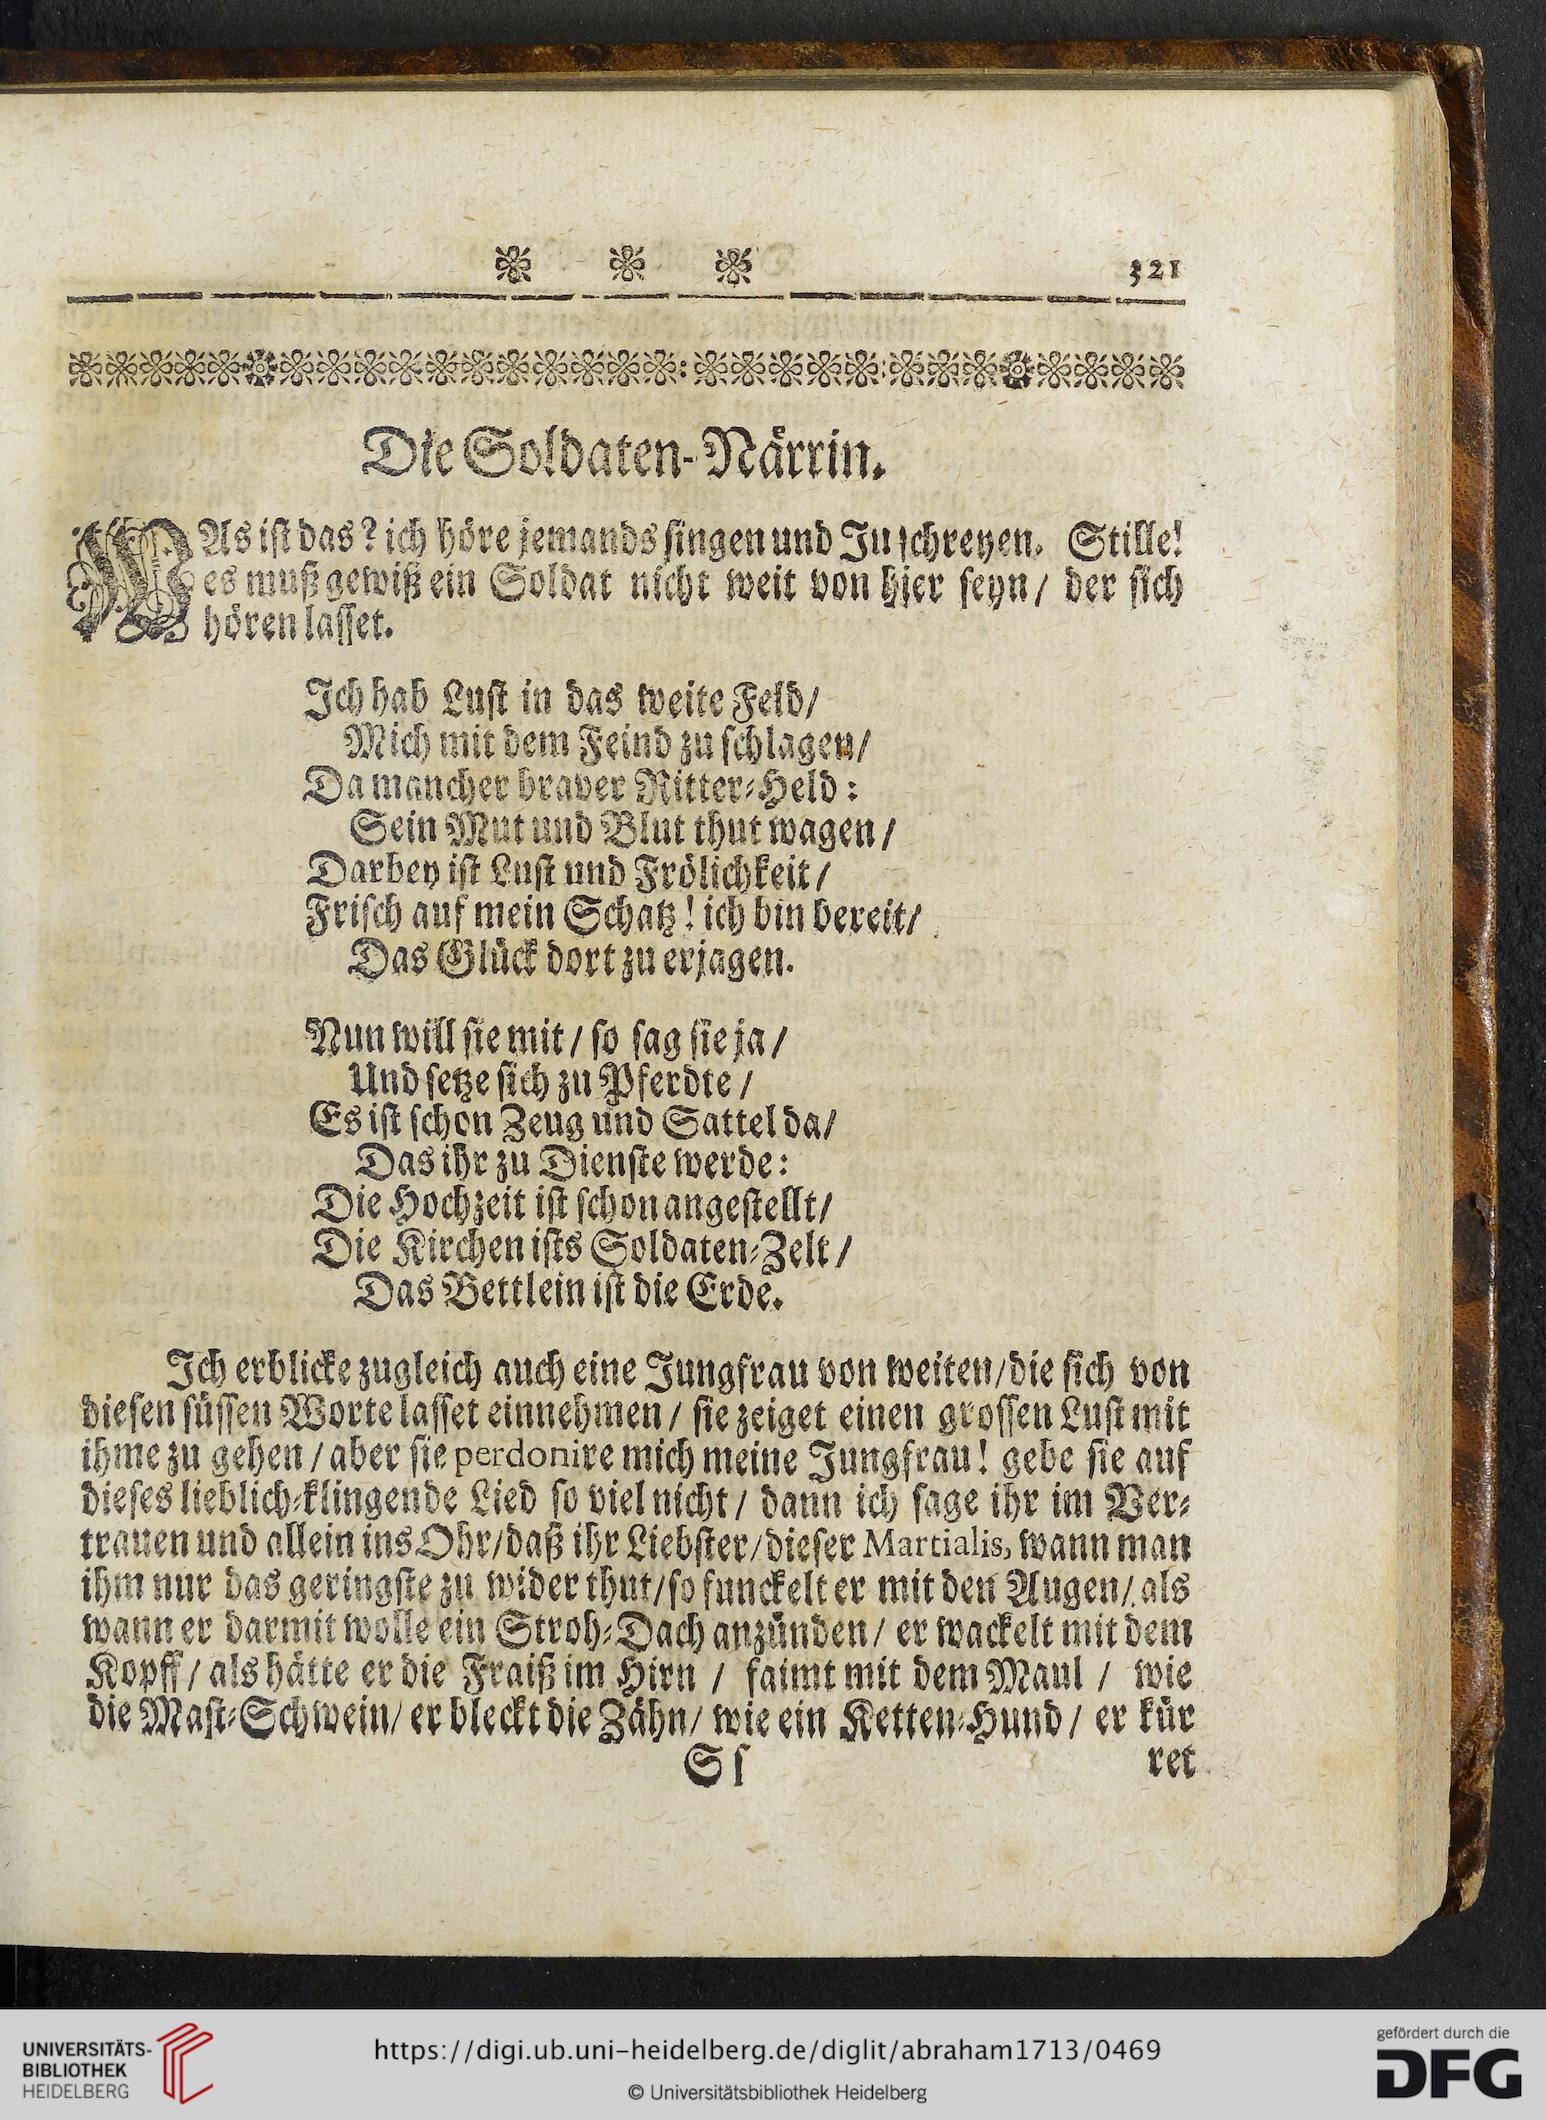 321
Die Soldaten-Närrin.
WAs ist das? ich höre jemands singen und Ju schreyen. Stille!
es muß gewiß ein Soldat nicht weit von hier seyn / der sich
hören lasset.
Ich hab Lust in das weite Feld /
Mich mit dem Feind zu schlagen /
Da mancher braver Ritter-Held :
Sein Mut und Blut thut wagen /
Darbey ist Lust und Frölichkeit /
Frisch auf mein Schatz! ich bin bereit /
Das Glück dort zu erjagen.
Nun will sie mit / so sag sie ja /
Und setze sich zu Pferdte /
Es ist schon Zeug und Sattel da /
Das ihr zu Dienste werde :
Die Hochzeit ist schon angestellt /
Die Kirchen ists Soldaten-Zelt /
Das Bettlein ist die Erde.
Ich erblicke zugleich auch eine Jungfrau von weiten / die sich von
diesen süssen Worte lasset einnehmen / sie zeiget einen grossen Lust mit
ihme zu gehen / aber sie perdonire mich meine Jungfrau! gebe sie auf
dieses lieblich-klingende Lied so viel nicht / dann ich sage ihr im Ver-
trauen und allein ins Ohr / daß ihr Liebster / dieser Martialis, wann man
ihm nur das geringste zu wider thut / so funckelt er mit den Augen / als
wann er darmit wolle ein Stroh-Dach anzünden / er wackelt mit dem
Kopff / als hätte er die Fraiß im Hirn / faimt mit dem Maul / wie
die Mast-Schwein / er bleckt die Zähn / wie ein Ketten-Hund / er kür
S s ret
UNIVERSITÄTS-
BIBLIOTHEK
HEIDELBERG
https://digi.ub.uni-heidelberg.de/diglit/abraham1713/0469
© Universitätsbibliothek Heidelberg
gefördert durch die
DFG